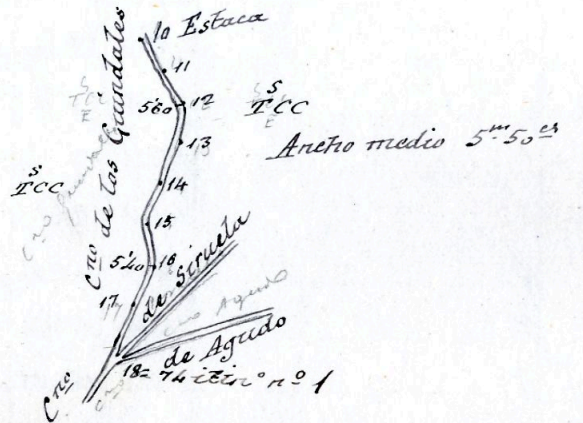 10 Estaca
11
5'60 12
S
TCC
E
S
TCC
13
Ancho medio 5m 50cs
14
15
5'40 16
17
Cno de los Guindales
Cno de Siruela
Cno Agudo
de Agudo
18 = 74 itino nº 1
Cno